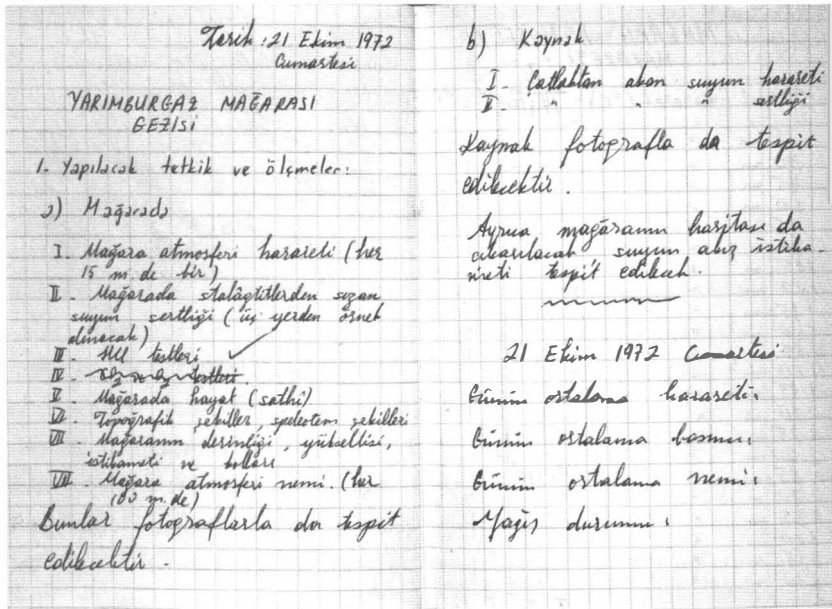 Tarih : 21 Ekim 1972
Cumartesi
YARIMBURGAZ MAĞARASI
GEZİSİ
1. Yapılacak tetkik ve ölçmeler:
a) Mağarada
I. Mağara atmosferi harareti (her
15 m. de bir)
II. Mağarada stalâgtitlerden sızan
suyun sertliği (üç yerden örnek
alınacak)
III. HCl testleri
IV. testleri.
V. Mağarada hayat (sathî)
VI. Topoğrafik şekiller, speleotem şekilleri
VII. Mağaranın derinliği, yüksekliği,
istikameti ve kolları
VIII. Mağara atmosferi nemi. (her
100 m. de)
Bunlar fotograflarla da tespit
edilecektir.
b) Kaynak
I. Çatlaktan akan suyun harareti
II. " " " sertliği
Kaynak fotografla da tespit
edilecektir.
Ayrıca mağaranın haritası da
çıkarılacak suyun akış istika-
meti tespit edilecek.
21 Ekim 1972 Cumartesi
Günün ortalama harareti:
Günün ortalama basıncı:
Günün ortalama nemi:
Yağış durumu: